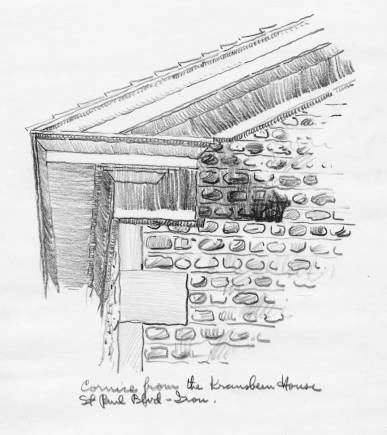 Cornice from the Kransbeen House
St Paul Blvd - Iron.